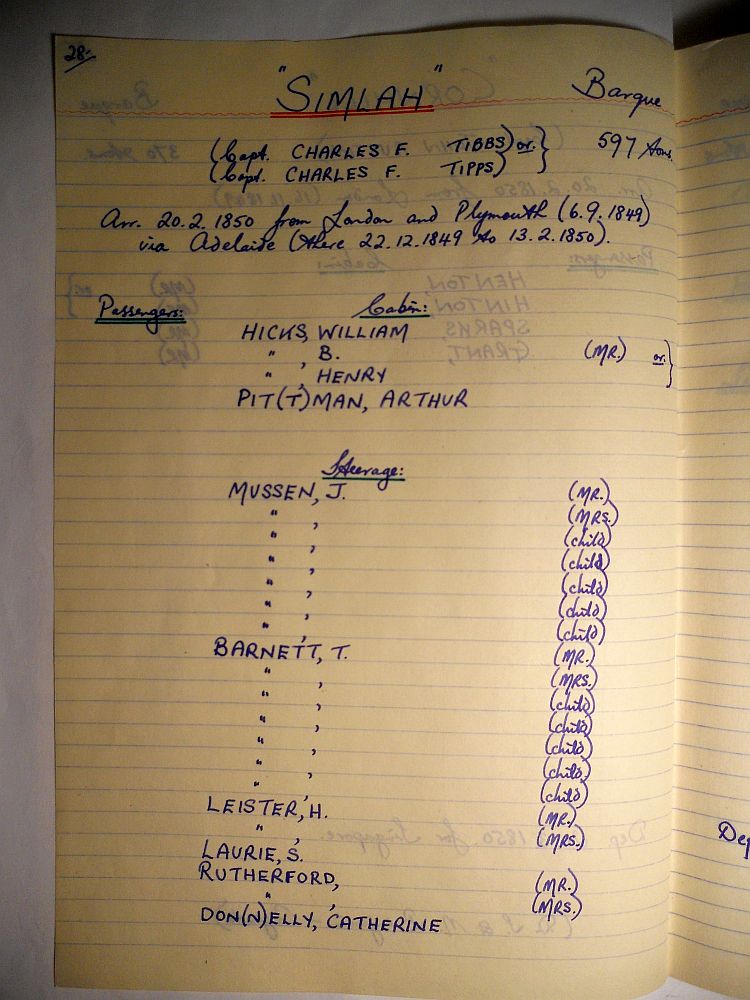 28.
"SIMLAH" Barque
(Capt. CHARLES F. TIBBS) or. } 597 tons.
(Capt. CHARLES F. TIPPS)
Arr. 20.2.1850 from London and Plymouth (6.9.1849)
via Adelaide (there 22.12.1849 to 13.2.1850).
Passengers: Cabin:
HICKS, WILLIAM
" , B. (MR.) or. }
" , HENRY
PIT(T)MAN, ARTHUR
Steerage:
MUSSEN, J. (MR.)
" , (MRS.)
" , (child)
" , (child)
" , (child)
" , (child)
" , (child)
BARNETT, T. (MR.)
" , (MRS.)
" , (child)
" , (child)
" , (child)
" , (child)
" , (child)
LEISTER, H. (MR.)
" , (MRS.)
LAURIE, S.
RUTHERFORD, (MR.)
" , (MRS.)
DON(N)ELLY, CATHERINE
Dep